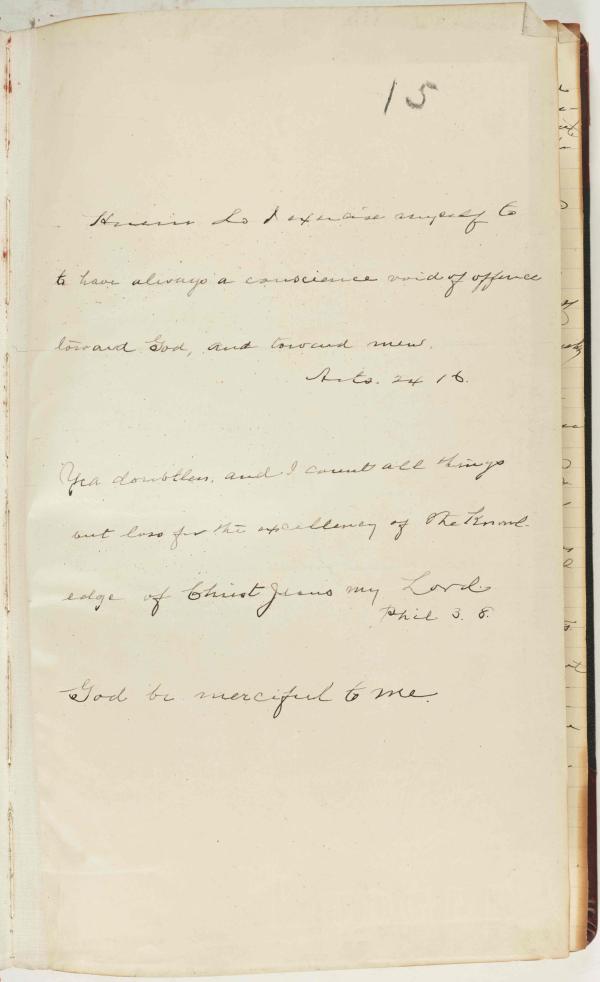 15
Herein do I exercise myself to
to have always a conscience void of offence
toward God, and toward men.
Acts. 24 16.
Yea doubtless, and I count all things
but loss for the excellency of the Knowl-
edge of Christ Jesus my Lord.
Phil 3. 8.
God be merciful to me.